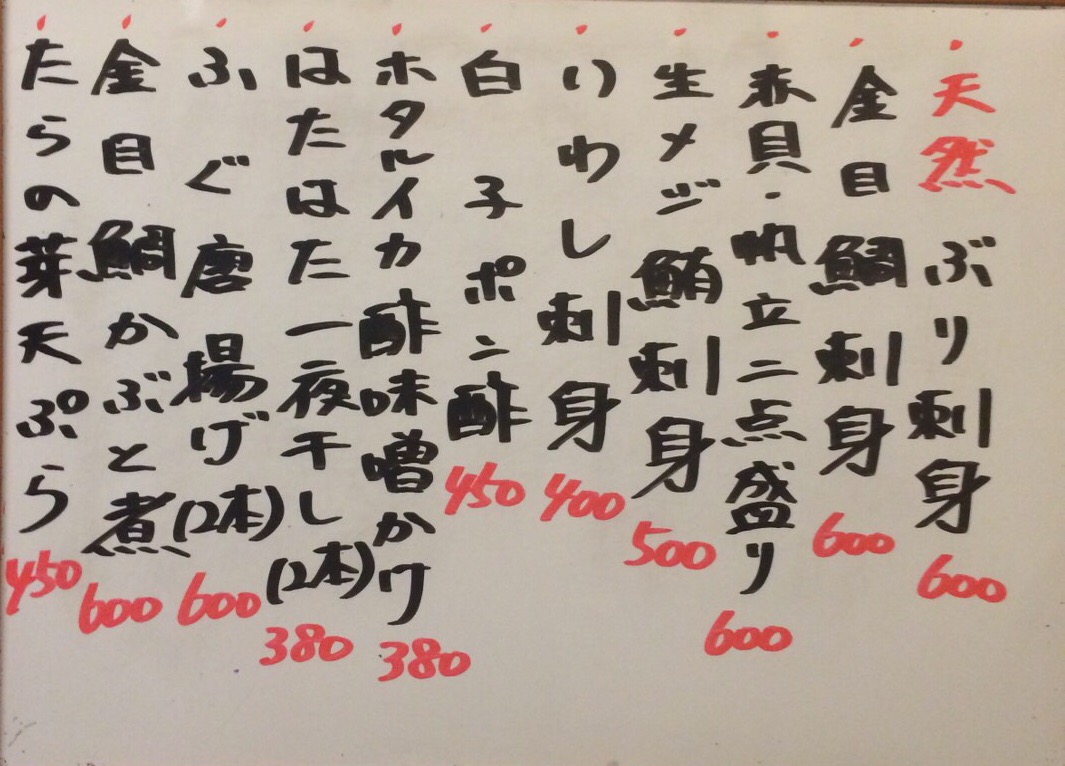 天然ぶり刺身 600
金目鯛刺身 600
赤貝・帆立二点盛り 600
生メジ鮪刺身 500
いわし刺身 400
白子ポン酢 450
ホタルイカ酢味噌かけ 380
はたはた一夜干し(2本) 380
ふぐ唐揚げ(2本) 600
金目鯛かぶと煮 600
たらの芽天ぷら 450